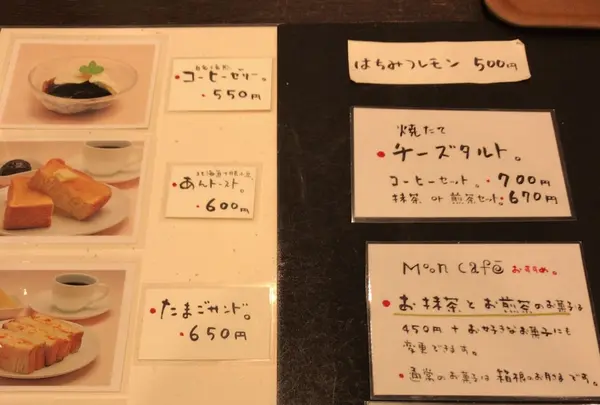 自家焙煎
コーヒーゼリー。
・550円
北海道十勝小豆
あんトースト。
・600円
たまごサンド。
・650円
はちみつレモン 500円
焼たて
チーズタルト。
コーヒーセット。・700円
抹茶 or 煎茶セット。・670円
Moon Café おすすめ。
お抹茶とお煎茶のお菓子は
450円 + お好きなお菓子にも
変更できます。
・通常のお菓子は箱根のお餅です。